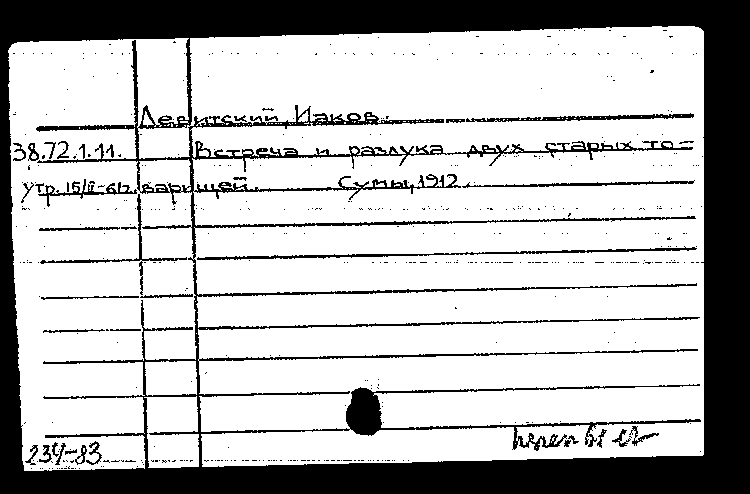 Левитский, Иаков.
38.72.1.11. Встреча и разлука двух старых то=
утр. 15/II-61г. варищей. Сумы, 1912.
234-83